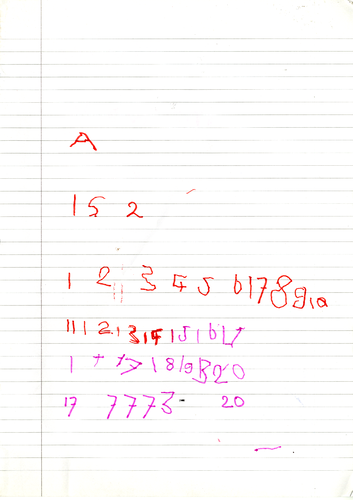 A
1 5 2
1 2 3 4 5 6 7 8 9 10
11 12 13 14 15 16 17
1 7 7 7 1 8 19 20
17 7 7 7 3 20